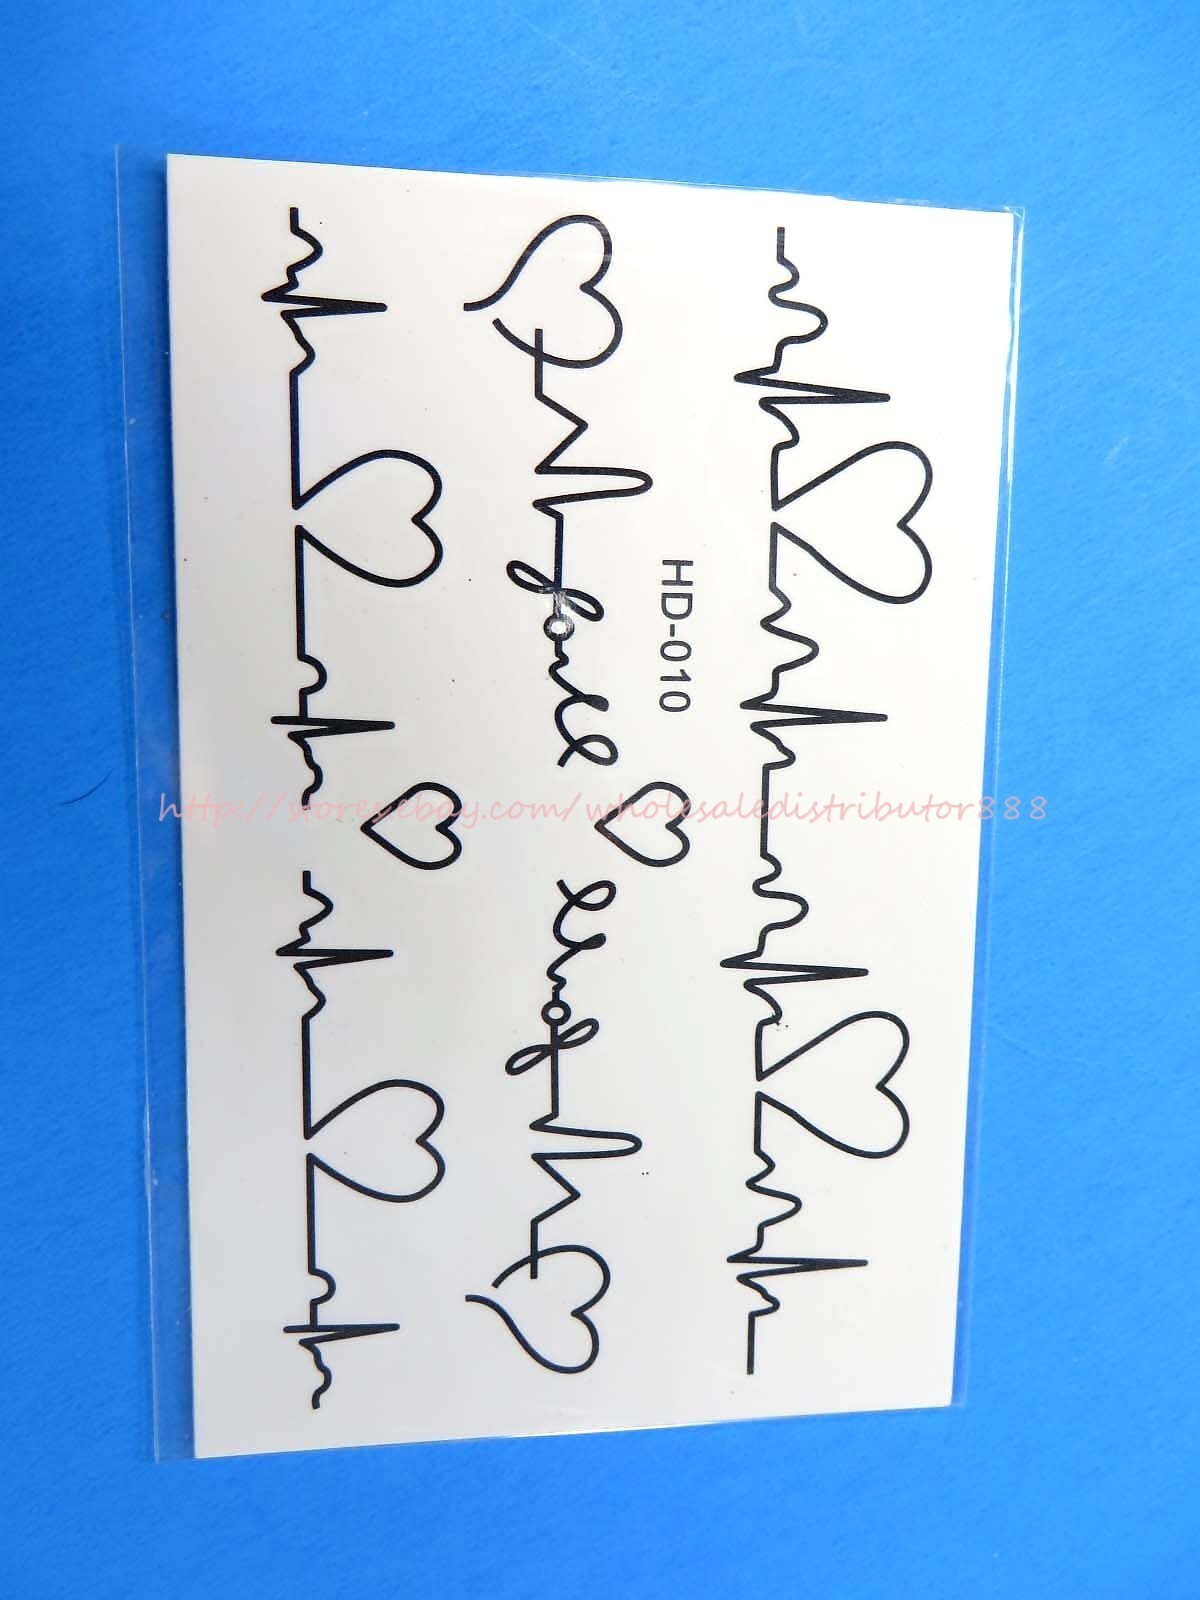 HD-010
http://stores.ebay.com/wholesaledistributor888